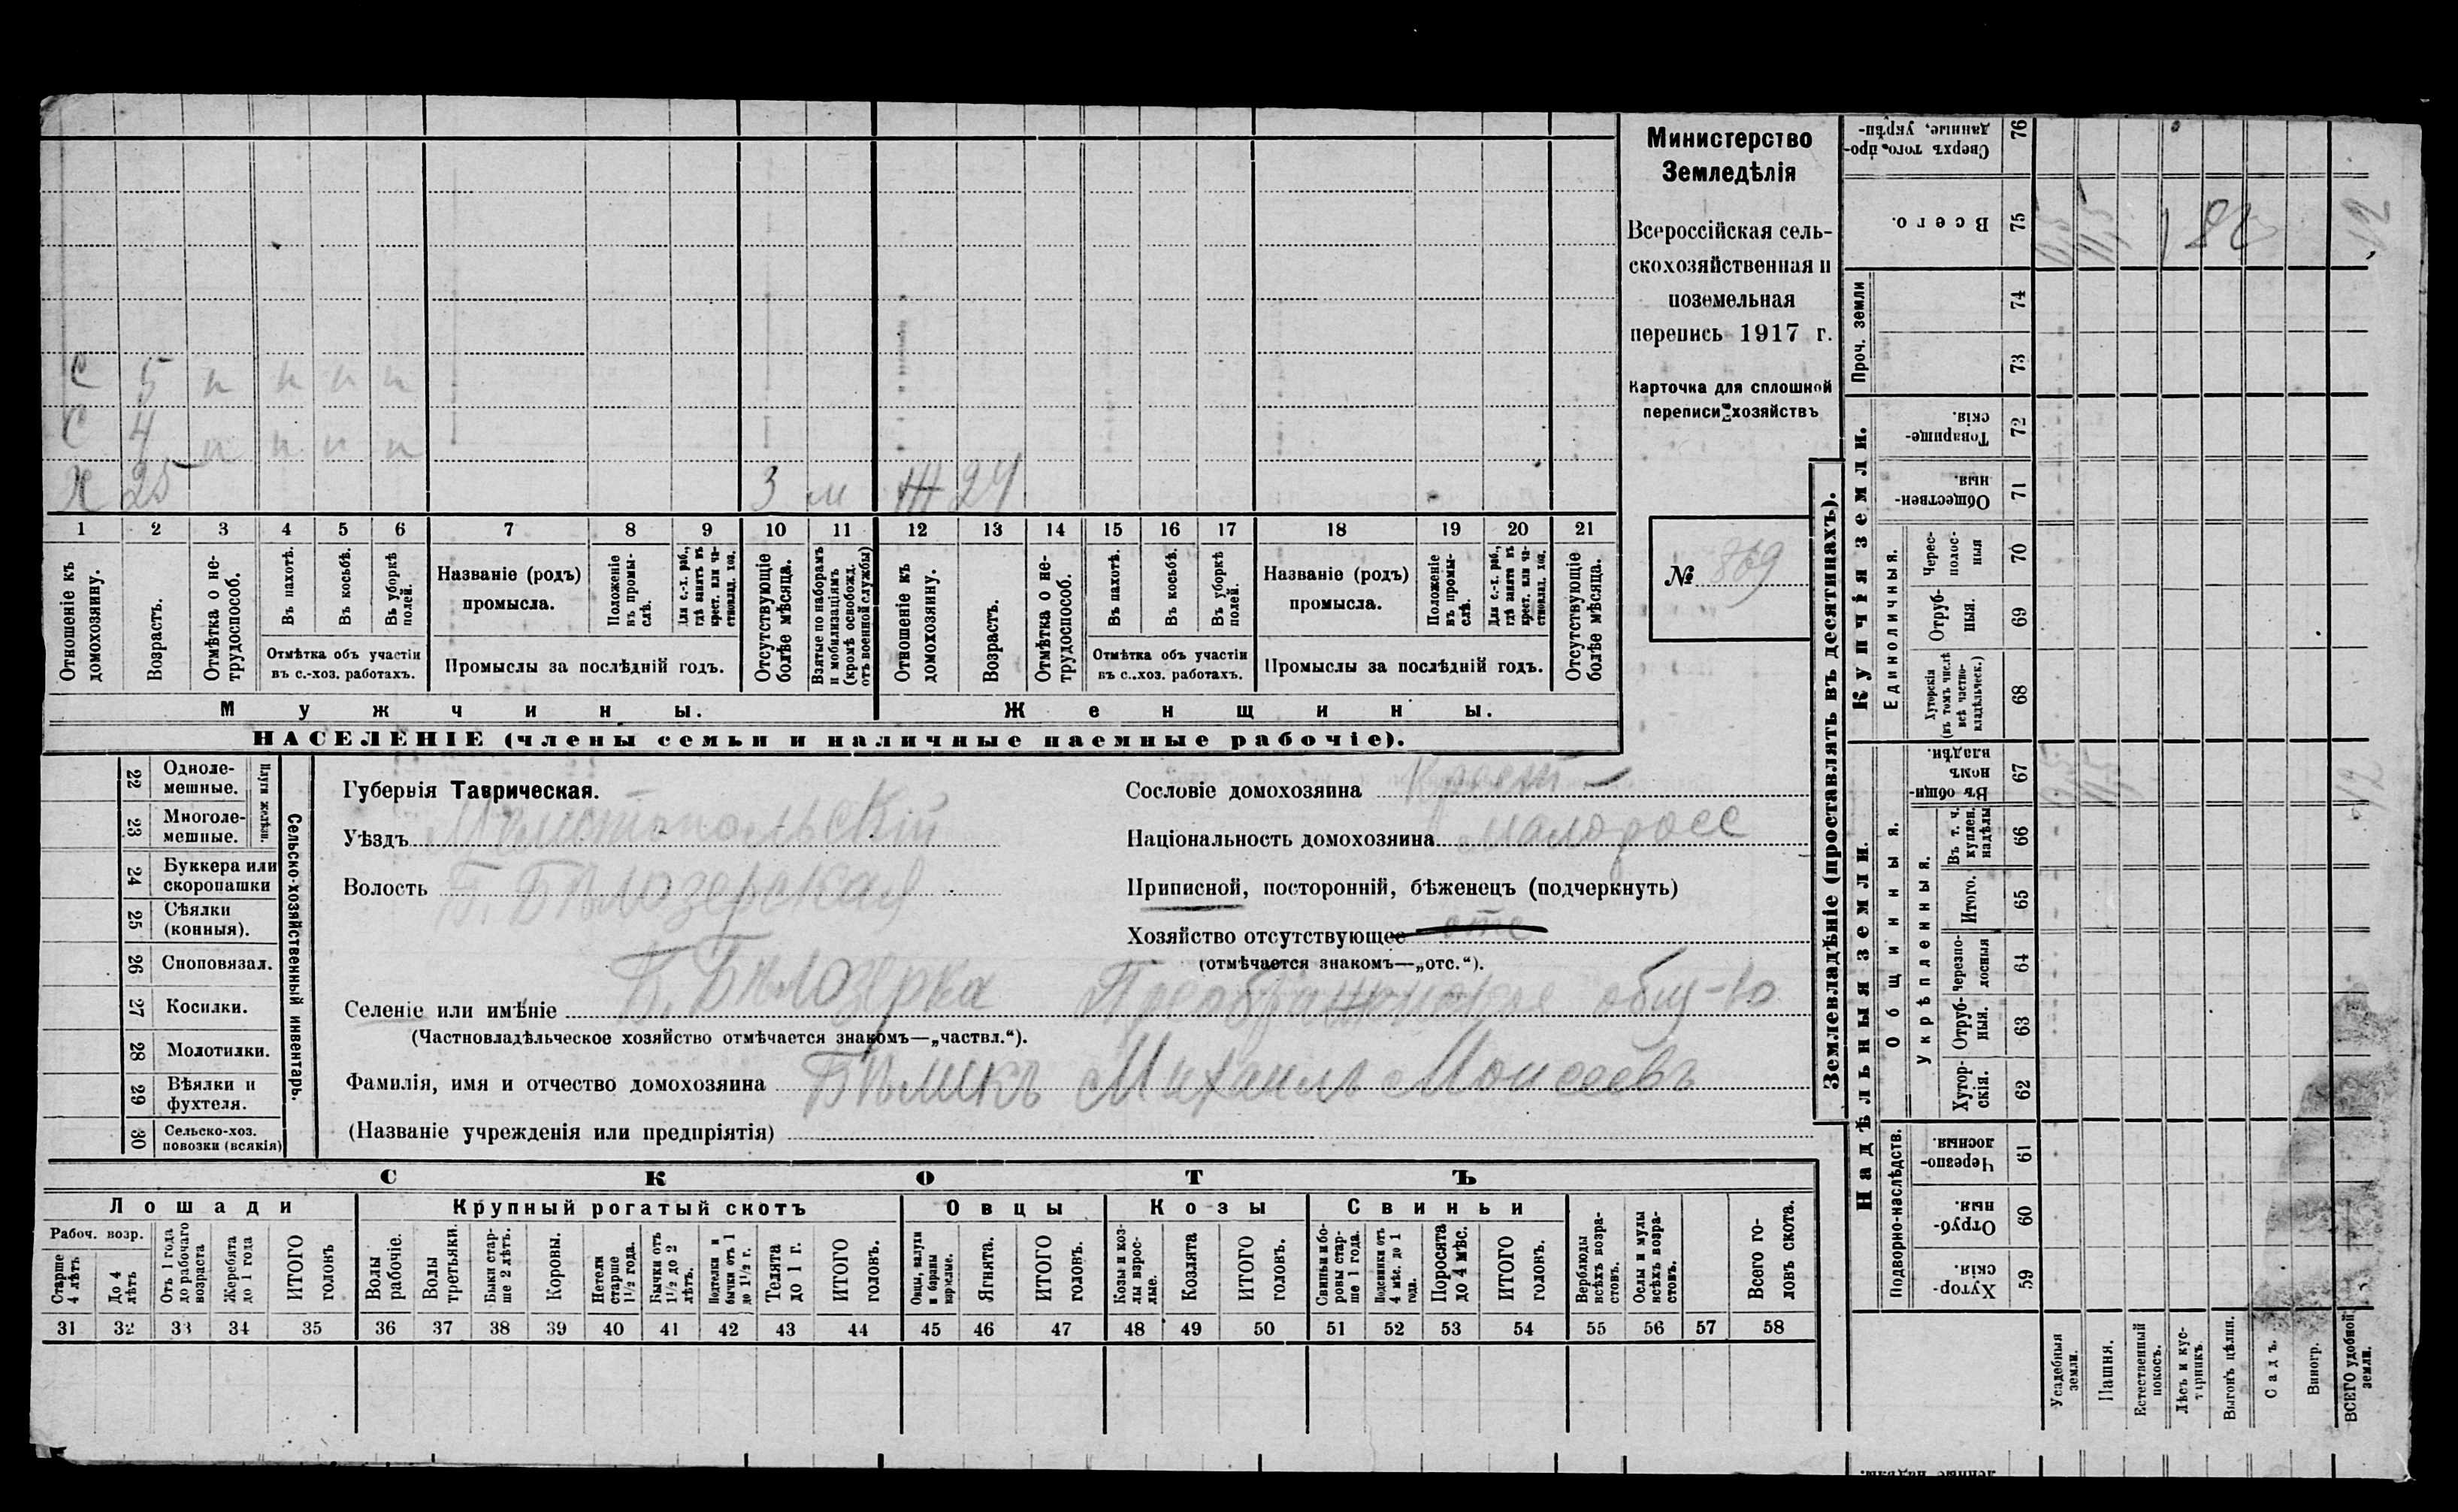 Министерство
Земледѣлія
Всероссійская сель-
скохозяйственная и
поземельная
перепись 1917 г.
Карточка для сплошной
переписи хозяйствъ
№ 869
С 5 н н н н
С 4 н н н н
Х 25 3 м Ж 24
1 2 3 4 5 6 7 8 9 10 11 12 13 14 15 16 17 18 19 20 21
Отношеніе къ домохозяину.
Возрастъ.
Отмѣтка о не-трудоспособ.
Въ пахотѣ.
Въ косьбѣ.
Въ уборкѣ полей.
Отмѣтка объ участіи
въ с.-хоз. работахъ.
Названіе (родъ)
промысла.
Положеніе въ промы-слѣ.
Для с.-х. раб., гдѣ занятъ въ крест. или ча-стновлад. хоз.
Промыслы за послѣдній годъ.
Отсутствующіе болѣе мѣсяца.
Взятые по наборамъ и мобилизаціямъ (кромѣ освобожд. отъ военной службы)
Отношеніе къ домохозяину.
Возрастъ.
Отмѣтка о не-трудоспособ.
Въ пахотѣ.
Въ косьбѣ.
Въ уборкѣ полей.
Отмѣтка объ участіи
въ с..хоз. работахъ.
Названіе (родъ)
промысла.
Положеніе въ промы-слѣ.
Для с.-х. раб., гдѣ занята въ крест. или ча-стновлад. хоз.
Промыслы за послѣдній годъ.
Отсутствующіе болѣе мѣсяца.
Мужчины. Женщины.
НАСЕЛЕНІЕ (члены семьи и наличные наемные рабочіе).
Сельско-хозяйственный инвентарь.
Плуги желѣзн.
22 Одноле-мешные.
23 Многоле-мешные.
24 Буккера или скоропашки
25 Сѣялки (конныя).
26 Сноповязал.
27 Косилки.
28 Молотилки.
29 Вѣялки и фухтеля.
30 Сельско-хоз. повозки (всякія)
Губернія Таврическая.
Уѣздъ Мелитопольскій
Волость Б. Бѣлозерская
Сословіе домохозяина Крест
Національность домохозяина Малоросс
Приписной, посторонній, бѣженецъ (подчеркнуть)
Хозяйство отсутствующее отс
(отмѣчается знакомъ—„отс.“).
Селеніе или имѣніе Б. Бѣлозерка Преображенское общ-во
(Частновладѣльческое хозяйство отмѣчается знакомъ—„частвл.“).
Фамилія, имя и отчество домохозяина Бѣликъ Михаилъ Моисеевъ
(Названіе учрежденія или предпріятія)
СКОТЪ
Лошади Крупный рогатый скотъ Овцы Козы Свиньи
Рабоч. возр.
Старше 4 лѣтъ
До 4 лѣтъ
Отъ 1 года до рабочаго возраста
Жеребята до 1 года
ИТОГО головъ
Волы рабочіе.
Волы третьяки.
Быки стар-ше 2 лѣтъ.
Коровы.
Нетели старше 1½ года.
Бычки отъ 1½ до 2 лѣтъ.
Подтелки и бычки отъ 1 до 1½ г.
Телята до 1 г.
ИТОГО головъ.
Овцы, валухи и бараны взрослые.
Ягнята.
ИТОГО головъ.
Козы и коз-лы взрос-лые.
Козлята
ИТОГО головъ.
Свиньи и бо-ровы стар-ше 1 года.
Подсвинки отъ 4 мѣс. до 1 года.
Поросята до 4 мѣс.
ИТОГО головъ.
Верблюды всѣхъ возра-стовъ.
Ослы и мулы всѣхъ возра-стовъ.
Всего го-ловъ скота.
31 32 33 34 35 36 37 38 39 40 41 42 43 44 45 46 47 48 49 50 51 52 53 54 55 56 57 58
Землевладѣніе (проставлять въ десятинахъ).
Купчія земли.
Надѣльныя земли.
Сверхъ того, про-данные, укрѣп- 76
Всего. 75
Проч. земли 74 73
Товарище-скія. 72
Обществен-ныя. 71
Единоличныя.
Черес-полос-ныя 70
Отруб-ныя. 69
Хуторскія (въ томъ числѣ всѣ частно-владѣльческ.) 68
Общинныя.
Въ общи-номъ владѣн. 67
Укрѣпленныя.
Въ т. ч. куплен. надѣлы 66
Итого. 65
Черезпо-лосныя 64
Отруб-ныя. 63
Хутор-скія. 62
Подворно-наслѣдств.
Черезпо-лосныя. 61
Отруб-ныя. 60
Хутор-скія. 59
Усадебныя земли.
Пашня.
Естественный покосъ.
Лѣсъ и кус-тарникъ.
Выгонъ цѣлин.
Садъ.
Виногр.
ВСЕГО удобной земли.
0,5 11,5 12
0,5 11,5 12